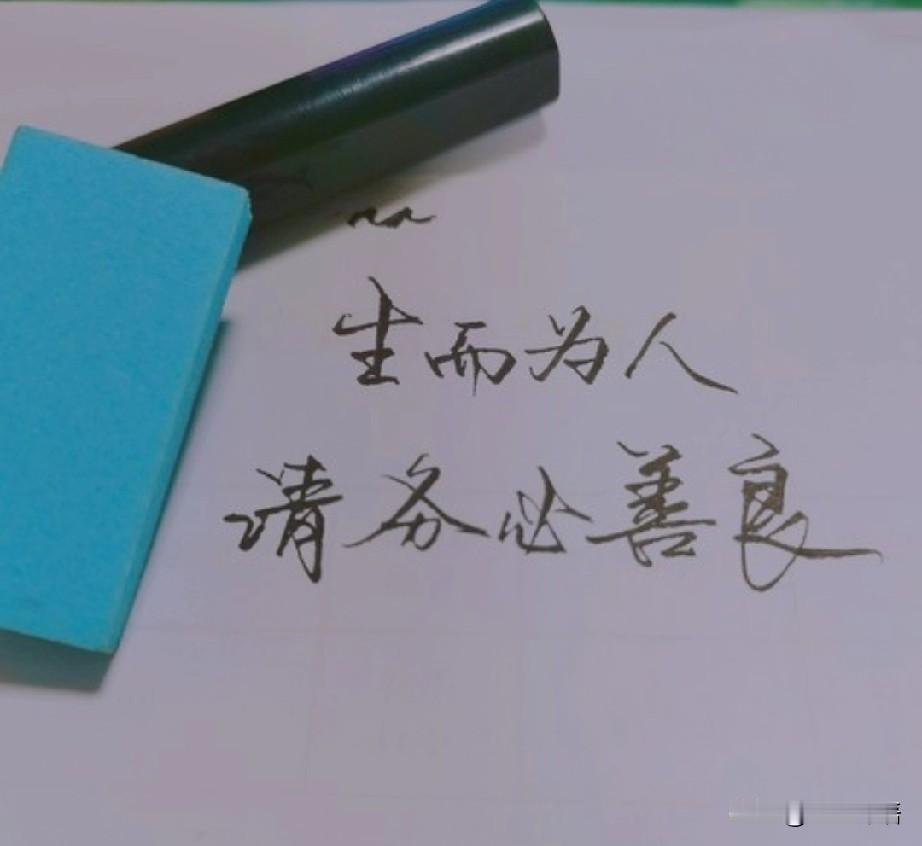 生而为人
请务必善良